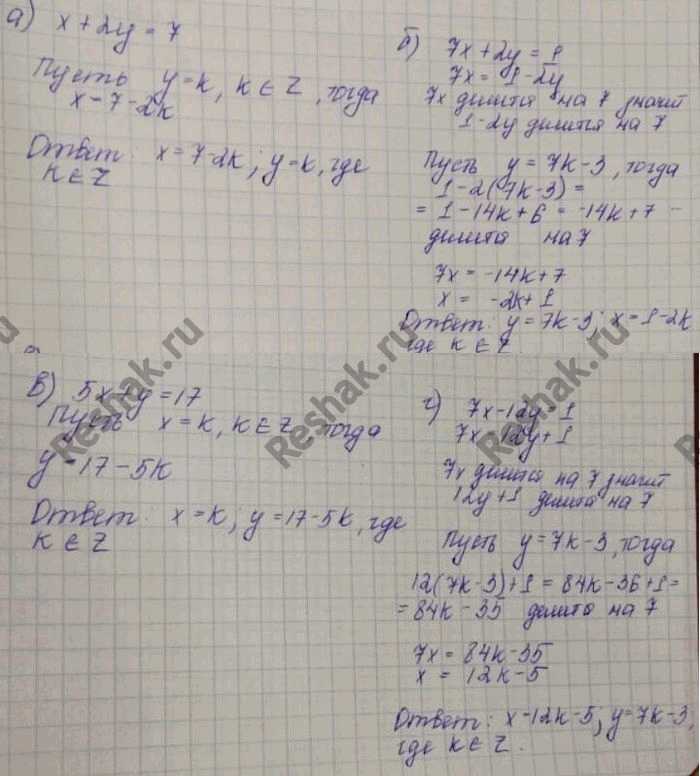 а) x + 2y = 7
Пусть y = k, k ∈ Z, тогда
x = 7 - 2k
Ответ: x = 7-2k; y = k, где
k ∈ Z
б) 7x + 2y = 1
7x = 1 - 2y
7x делится на 7 значит
1-2y делится на 7
Пусть y = 7k-3, тогда
1-2(7k-3) =
= 1-14k+6 = -14k+7 -
делится на 7
7x = -14k+7
x = -2k+1
Ответ: y = 7k-3; x = 1-2k
где k ∈ Z.
в) 5x+y = 17
Пусть x = k, k ∈ Z, тогда
y = 17 - 5k
Ответ: x = k; y = 17-5k, где
k ∈ Z
г) 7x-12y = 1
7x = 12y+1
7x делится на 7 значит
12y+1 делится на 7
Пусть y = 7k-3, тогда
12(7k-3)+1 = 84k-36+1 =
= 84k-35 делится на 7
7x = 84k-35
x = 12k-5
Ответ: x = 12k-5; y = 7k-3,
где k ∈ Z.
Reshak.ru
Reshak.ru
Reshak.ru